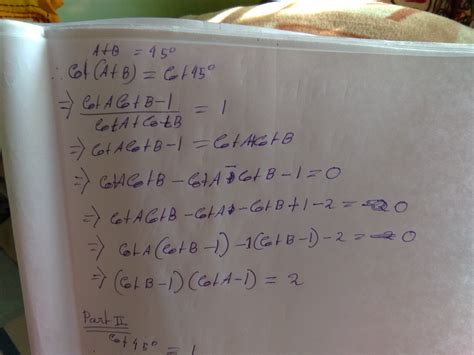 A+B = 45°
∴ Cot(A+B) = Cot 45°
⇒ CotACotB-1 / CotA+CotB = 1
⇒ CotACotB-1 = CotA+CotB
⇒ CotACotB - CotA - CotB - 1 = 0
⇒ CotACotB - CotA - CotB + 1 - 2 = 0
⇒ CotA(CotB-1) -1(CotB-1) - 2 = 0
⇒ (CotB-1)(CotA-1) = 2
Part II
∴ Cot 45° = 1